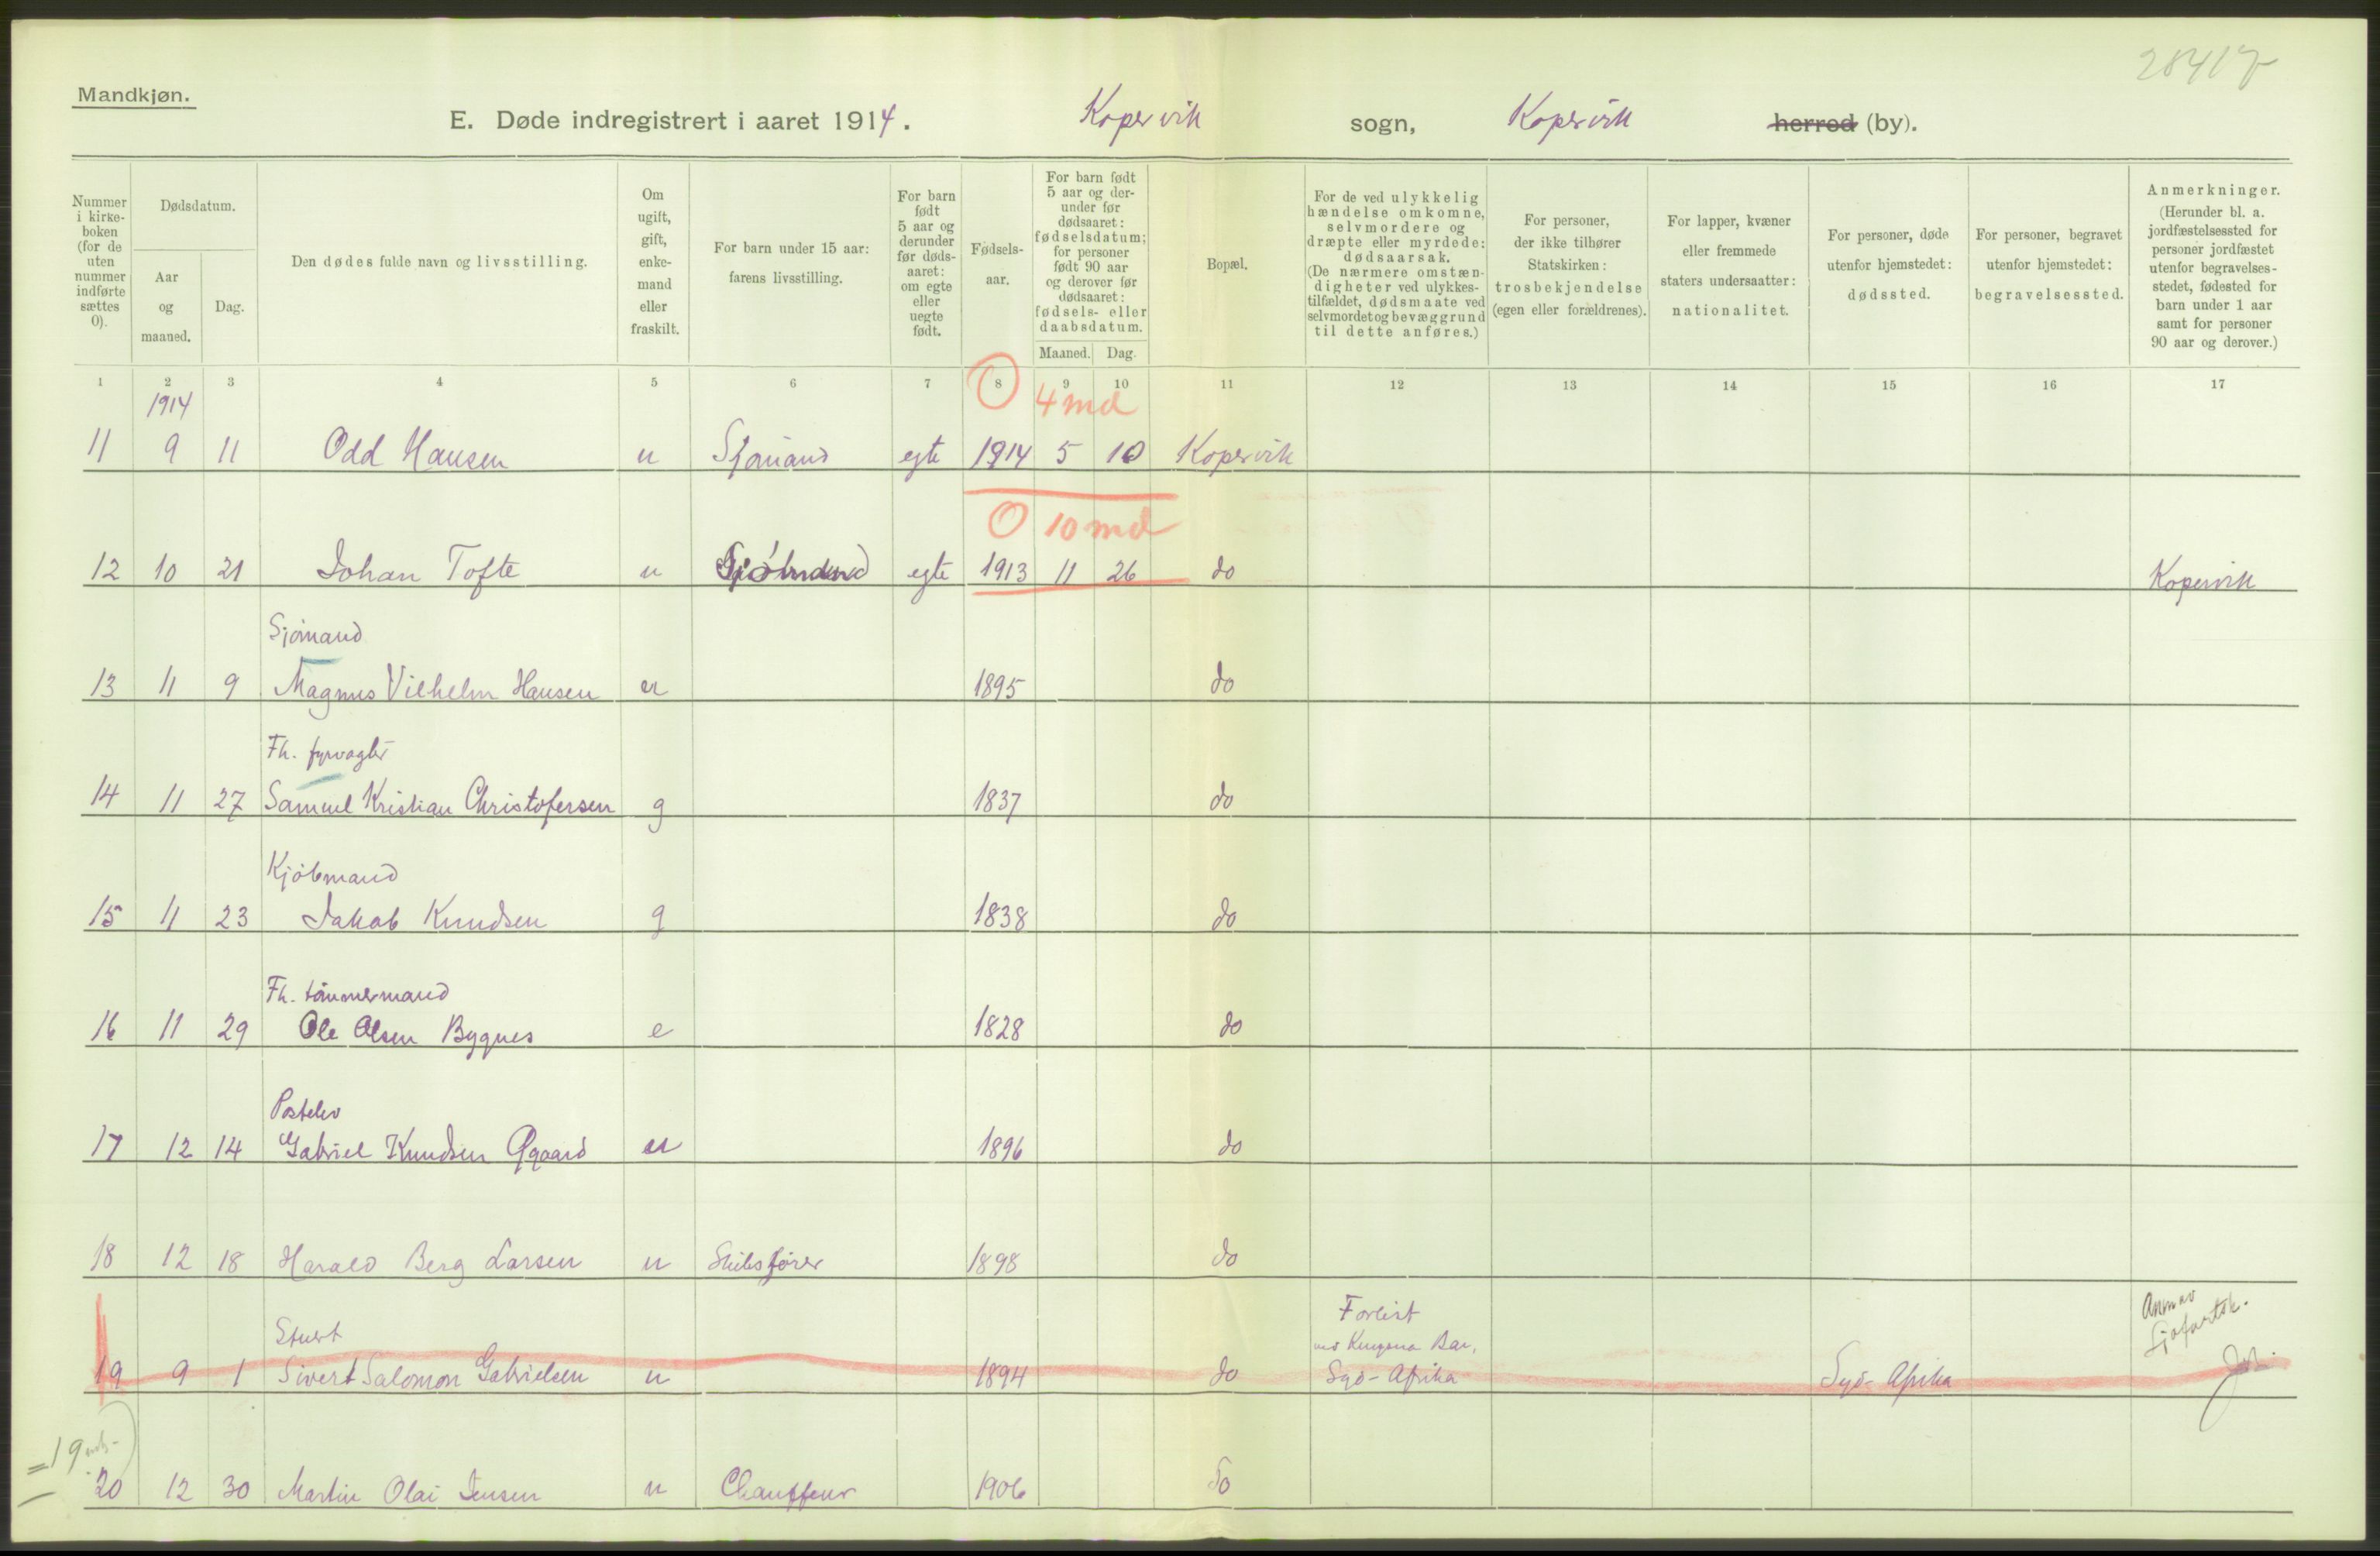 28417
Mandkjøn.
E. Døde indregistrert i aaret 1914. Kopervik sogn, Kopervik herred (by).
Nummer i kirke-boken (for de uten nummer indførte sættes 0).
Dødsdatum.
Aar og maaned.
Dag.
Den dødes fulde navn og livsstilling.
Om ugift, gift, enke-mand eller fraskilt.
For barn under 15 aar: farens livsstilling.
For barn født 5 aar og derunder før døds-aaret: om egte eller uegte født.
Fødsels-aar.
For barn født 5 aar og der-under før dødsaaret: fødselsdatum; for personer født 90 aar og derover før dødsaaret: fødsels- eller daabsdatum.
Maaned. Dag.
Bopæl.
For de ved ulykkelig hændelse omkomne, selvmordere og dræpte eller myrdede: dødsaarsak. (De nærmere omstæn-digheter ved ulykkes-tilfældet, dødsmaate ved selvmordet og bevæggrund til dette anføres.)
For personer, der ikke tilhører Statskirken: trosbekjendelse (egen eller forældrenes).
For lapper, kvæner eller fremmede staters undersaatter: nationalitet.
For personer, døde utenfor hjemstedet: dødssted.
For personer, begravet utenfor hjemstedet: begravelsessted.
Anmerkninger. (Herunder bl. a. jordfæstelsessted for personer jordfæstet utenfor begravelses-stedet, fødested for barn under 1 aar samt for personer 90 aar og derover.)
1 2 3 4 5 6 7 8 9 10 11 12 13 14 15 16 17
1914
0 4 md
11 9 11 Odd Hansen u Sjømand egte 1914 5 10 Kopervik
0 10 md
12 10 21 Johan Tofte u egte 1913 11 26 do Kopervik
Sjømand
13 11 9 Magnus Vilhelm Hansen u 1895 do
Fh. fyrvagter
14 11 27 Samuel Kristian Christofersen g 1837 do
Kjøbmand
15 11 23 Jakob Knudsen g 1838 do
Fh. tømmermand
16 11 29 Ole Olsen Bygnes e 1828 do
Postelev
17 12 14 Gabriel Knudsen Øgaard u 1896 do
18 12 18 Harald Berg Larsen u Skibsfører 1898 do
Stuert Forlist
19 9 1 Sivert Salomon Gabrielsen u 1894 do Syd-Afrika Syd-Afrika
=19
20 12 30 Martin Olai Jensen u Chauffeur 1906 do